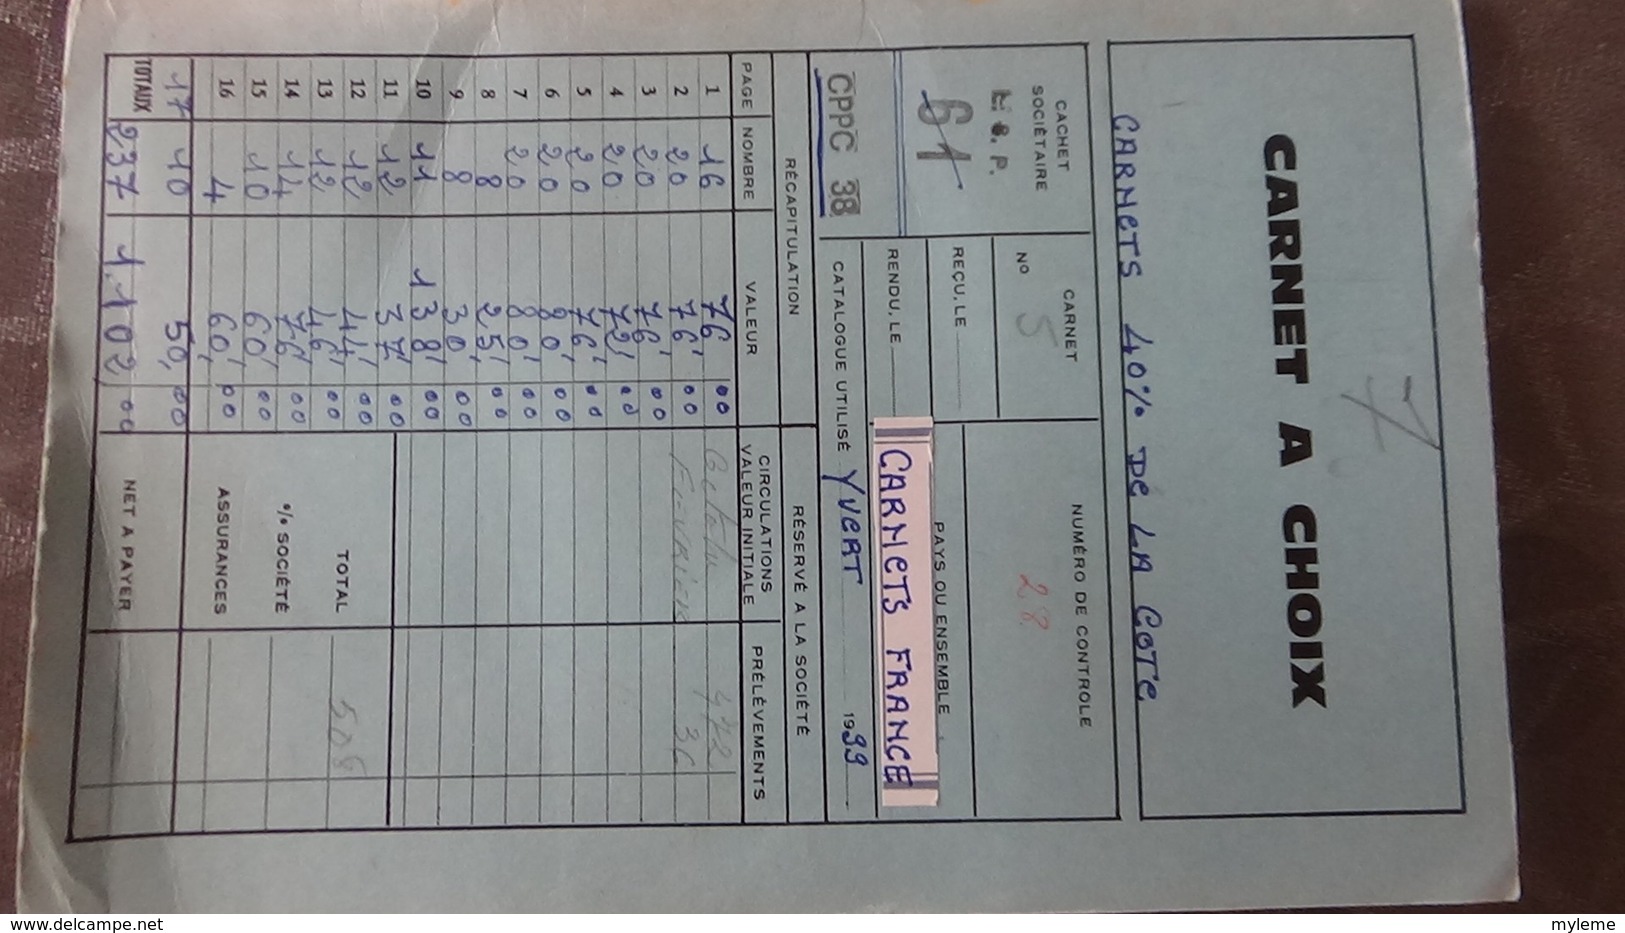 7
CARNET A CHOIX
CARNETS 40% DE LA COTE
CACHET SOCIÉTAIRE
61
CPPC 38
CARNET
N° 5
REÇU, LE
RENDU, LE
NUMÉRO DE CONTROLE
28
PAYS OU ENSEMBLE
CARNETS FRANCE
CATALOGUE UTILISÉ YVERT 1999
RÉCAPITULATION
RÉSERVÉ A LA SOCIÉTÉ
PAGE NOMBRE VALEUR CIRCULATIONS VALEUR INITIALE PRÉLÈVEMENTS
1 16 76, 00 472
2 20 76, 00 36
3 20 76, 00
4 20 72, 00
5 20 76, 00
6 20 80, 00
7 20 80, 00
8 8 25, 00
9 8 30, 00
10 11 138, 00
11 12 37, 00
12 12 44, 00 TOTAL 508
13 12 46, 00
14 14 76, 00 % SOCIÉTÉ
15 10 60, 00
16 4 60, 00 ASSURANCES
17 10 50, 00
TOTAUX 237 1.102,00 NET A PAYER
www.delcampe.net
myleme